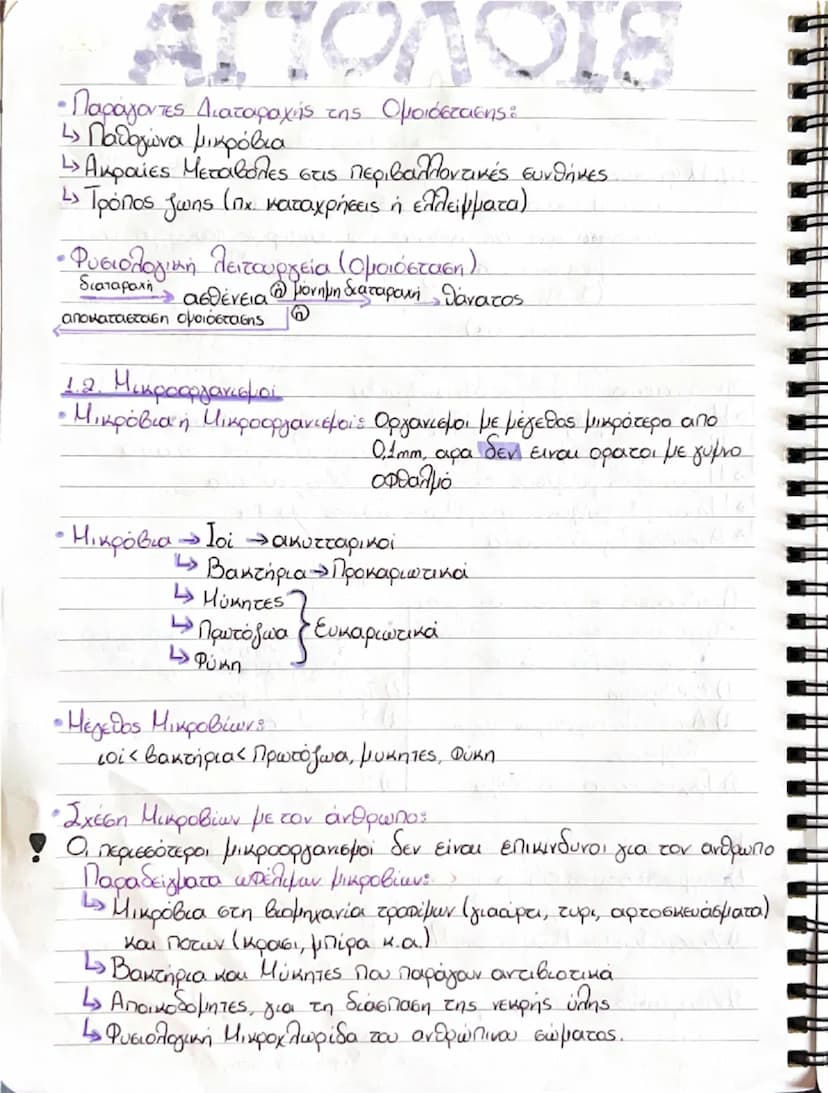 ΒΙΟΛΟΓΙΑ
• Παράγοντες Διαταραχής της Ομοιόστασης:
↳ Παθογώνα μικρόβια
↳ Ακραίες Μεταβολες στις περιβαλλοντικές συνθήκες
↳ Τρόπος ζωης (πχ. καταχρήσεις ή ελλείμματα)
• Φυσιολογική λειτουργεία (Ομοιόσταση)
διαταραχή → ασθένεια ή μόνιμη διαταραχή → θάνατος
αποκατασταση ομοιόστασης ή
1.2. Μικροοργανισμοί
• Μικρόβια ή Μικροοργανισμοί: Οργανισμοι με μέγεθος μικρότερο από
0,1mm, αρα δεν ειναι ορατοι με γυμνο
οφθαλμό
• Μικρόβια → Ιοί → ακυτταρικοί
↳ Βακτήρια → Προκαριωτικά
↳ Μύκητες
↳ Πρωτόζωα } Ευκαριωτικά
↳ Φύκη
• Μέγεθος Μικροβίων:
ιοί < βακτήρια < Πρωτόζωα, μυκητες, Φύκη
• Σχέση Μικροβίων με τον άνθρωπο:
! Οι περισσότεροι μικροοργανισμοί δεν είναι επικινδυνοι για τον ανθρωπο
Παραδείγματα ωφέλιμων μικροβίων:
↳ Μικρόβια στη βιομηχανία τροφίμων (γιαούρτι, τυρι, αρτοσκευάσματα)
και ποτων (κρασι, μπίρα κ.α.)
↳ Βακτήρια και Μύκητες που παράγουν αντιβιοτικά
↳ Αποικοδομητες, για τη διάσπαση της νεκρής ύλης
↳ Φυσιολογική Μικροχλωρίδα του ανθρώπινου σώματος.